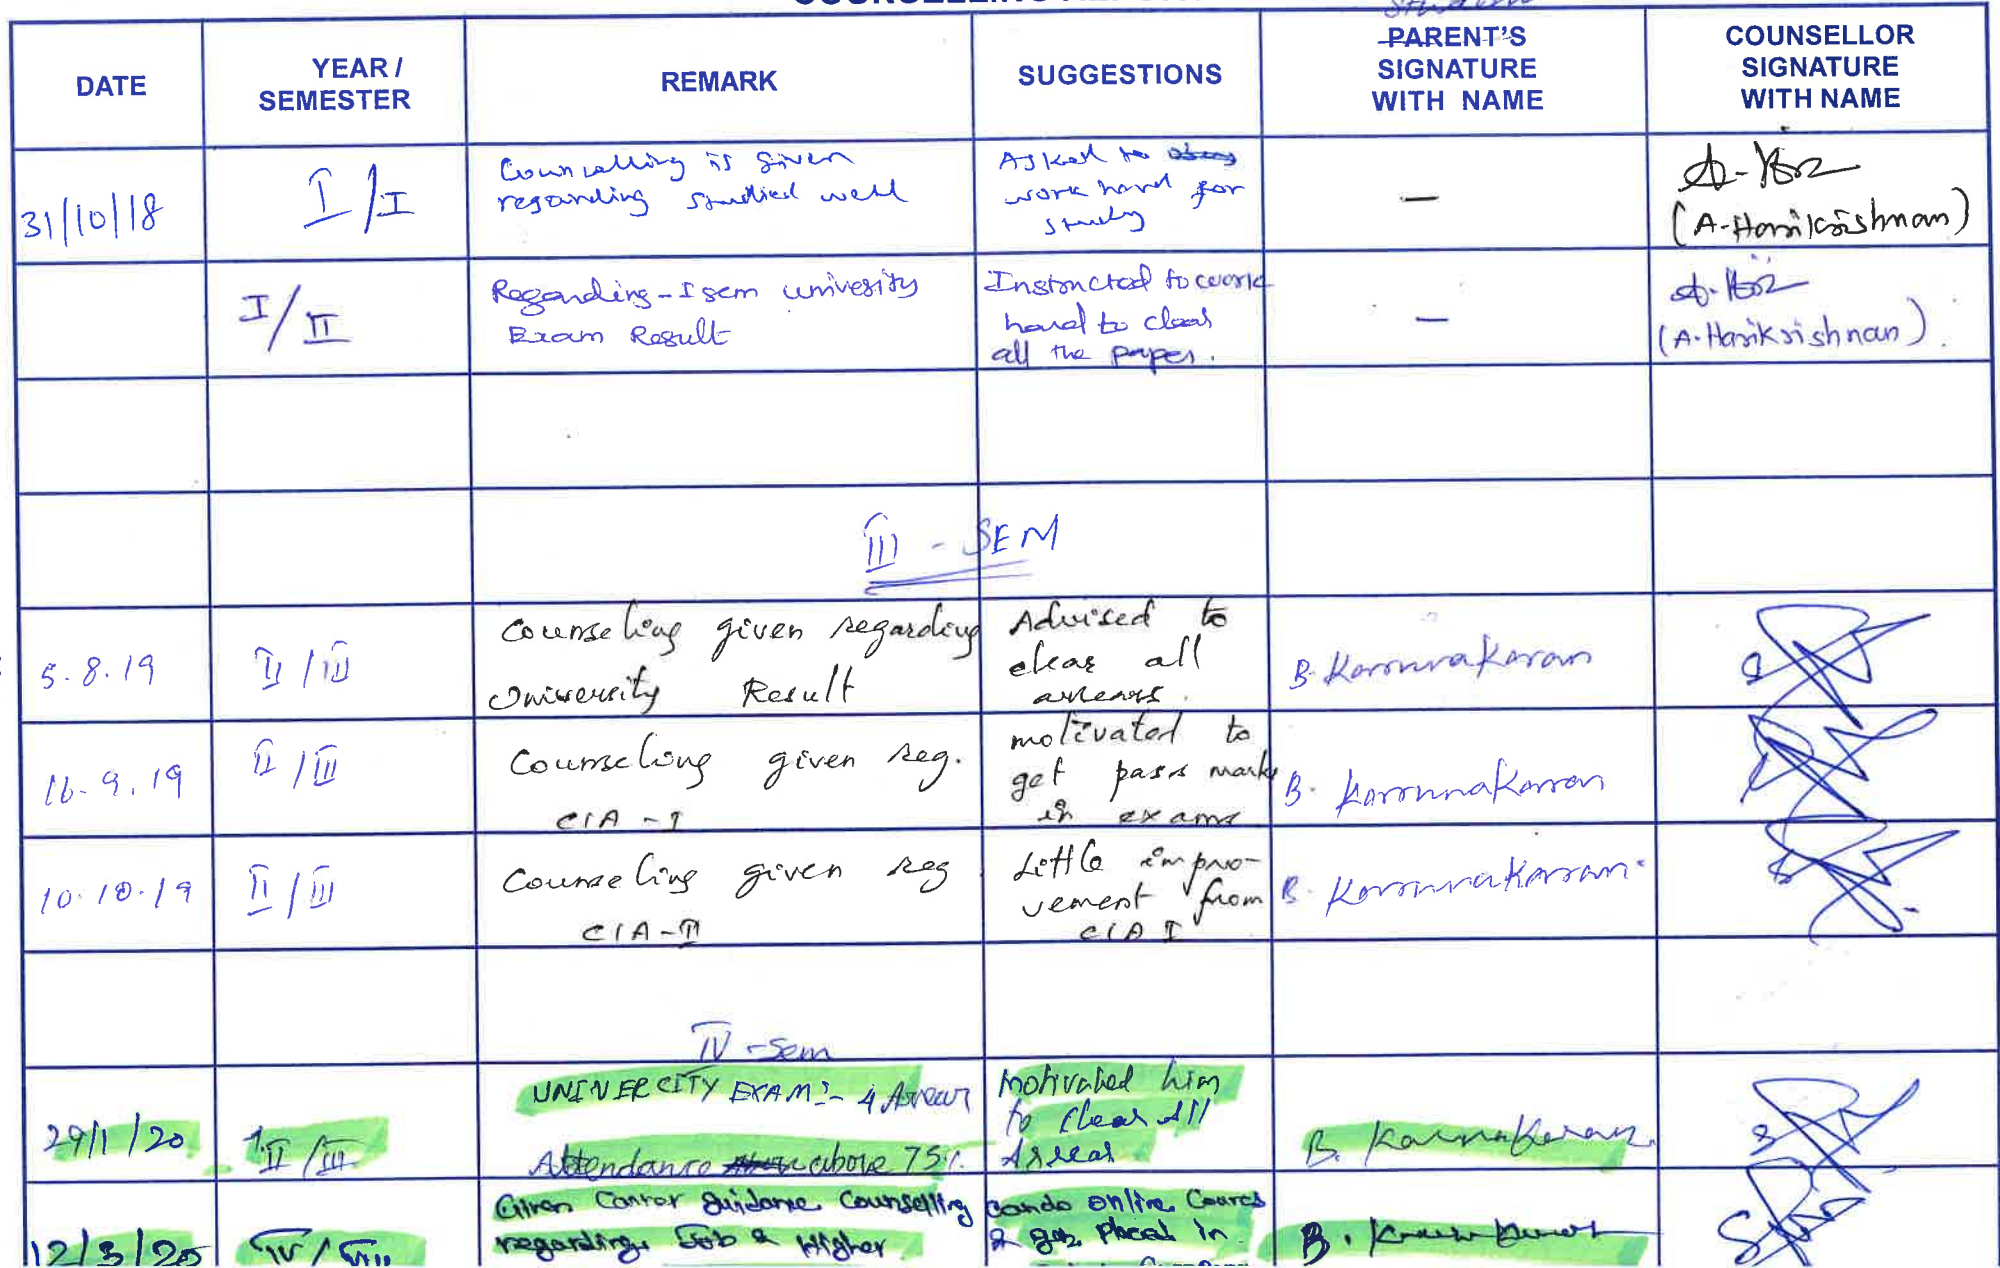 PARENT'S
SIGNATURE
WITH NAME
COUNSELLOR
SIGNATURE
WITH NAME
DATE
YEAR /
SEMESTER
REMARK
SUGGESTIONS
31/10/18
I/I
Councelling is given
regarding studied well
Asked to
work hard for
study
—
(A-Harikrishnan)
I/II
Regarding - I sem univesity
Exam Result
Instructed to work
hard to clear
all the paper.
—
(A.Harikrishnan).
III - SEM
5.8.19
II/III
Counseling given regarding
University Result
Advised to
clear all
arrears.
B. Karunakaran
16.9.19
II/III
Counseling given reg.
CIA - I
motivated to
get pass mark
in exams
B. Karunakaran
10.10.19
II/III
Counseling given reg
CIA-II
Little impro-
vement from
CIA I
B. Karunakaran
IV - Sem
29/1/20
II/III
UNIVERCITY EXAM:- 4 Arrear
Attendance above 75%
Motivated him
to Clear All
Arrear
B. Karunakaran
12/3/20
Given Carrer Guidance Counselling
regarding Job & Higher
online
placed in
B.